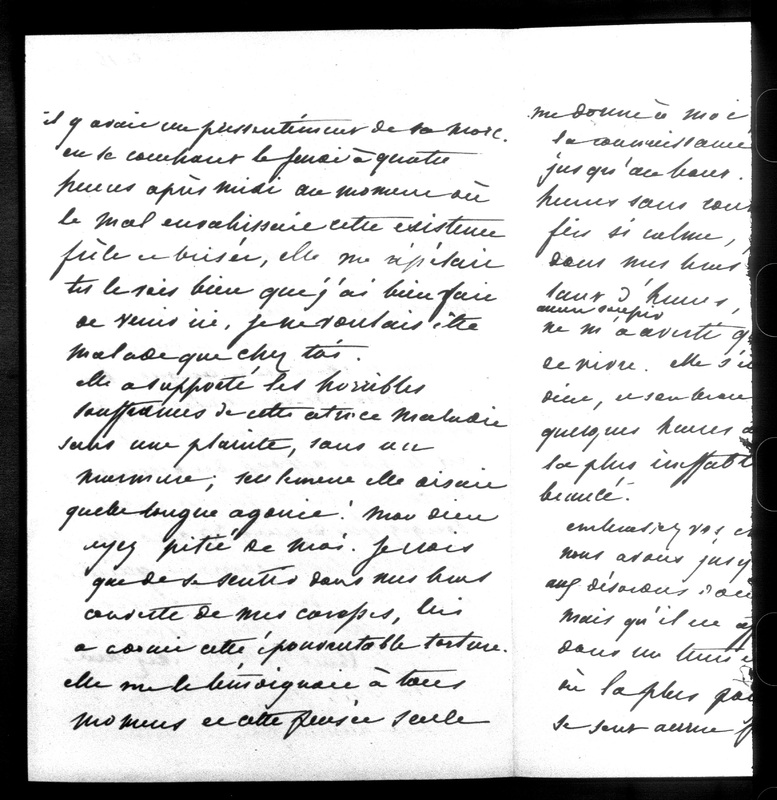 il y avait un pressentiment de sa mort.
en se couchant le jeudi à quatre
heures après midi au moment où
le mal envahissait cette existence
frêle et brisée, elle me répétait
tu le sais bien que j'ai bien fait
de venir ici, je ne voulais être
malade que chez toi.
elle a supporté les horribles
souffrances de cette atroce maladie
sans une plainte, sans un
murmure; seulement elle disait
quelle longue agonie! mon dieu
ayez pitié de moi. je crois
que de se sentir dans mes bras
couverte de mes caresses, lui
a adouci cette épouvantable torture.
elle me le témoignait à tous
momens et cette pensée seule
me donne à moi
sa connaissance
jusqu'au bout.
heures sans
fois si calme,
dans mes bras
tant d'heures,
aucun soupir
ne m'a averti
de vivre. elle
dieu, et son beau
quelques heures
la plus ineffable
beauté.
embrassez vos
nous avons
aux désordres
mais qu'il ne
dans un tems
où la plus
se sent